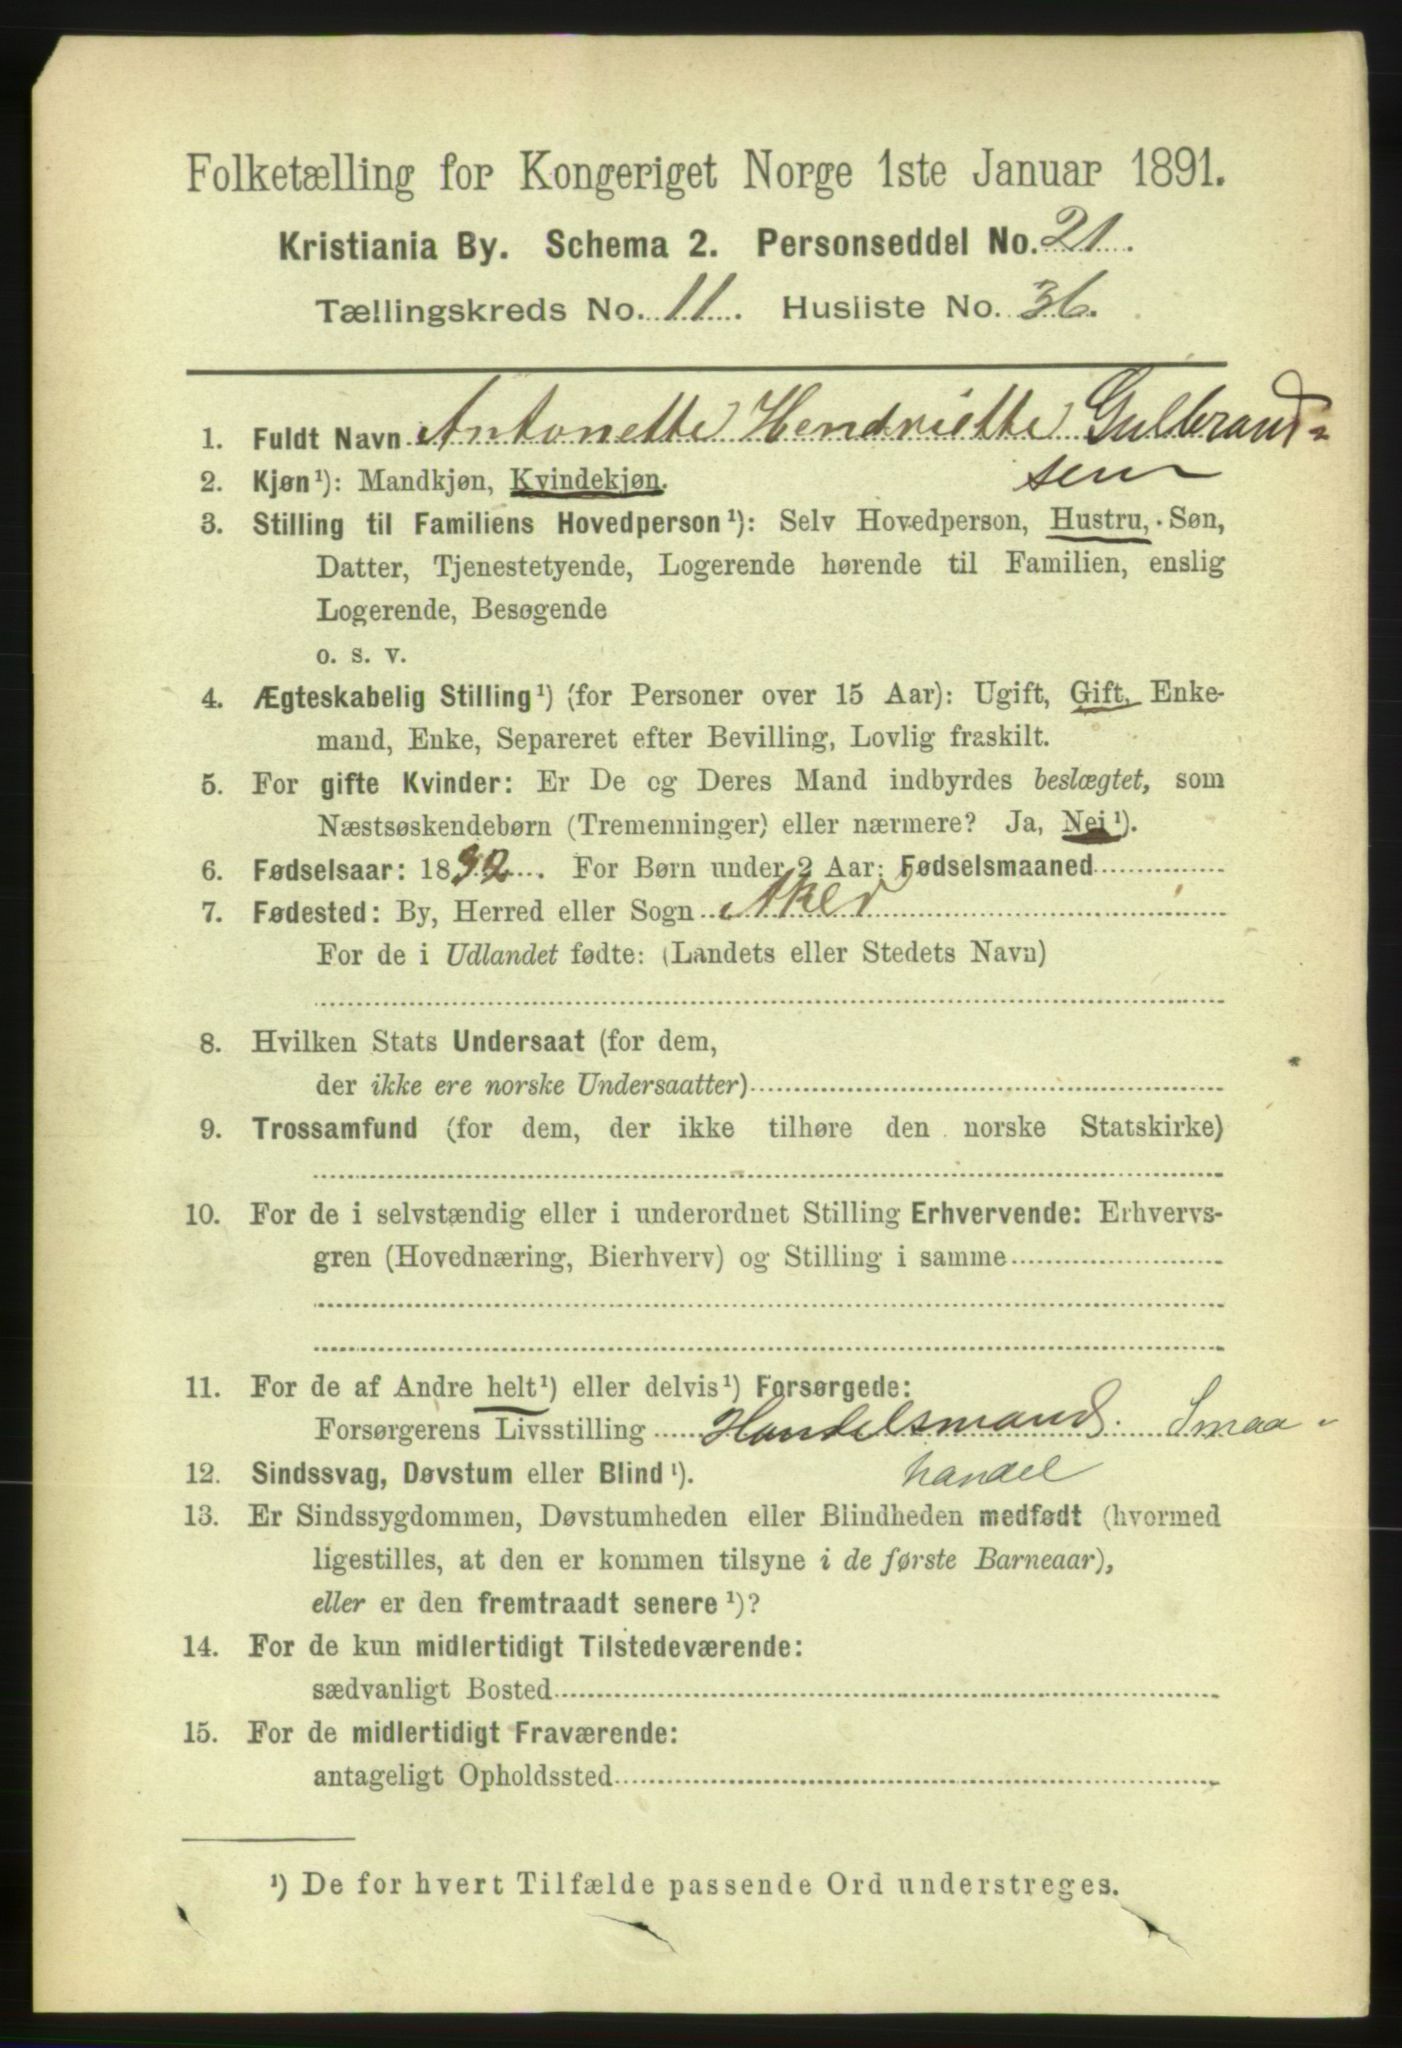 Folketælling for Kongeriget Norge 1ste Januar 1891.
Kristiania By. Schema 2. Personseddel No. 21.
Tællingskreds No. 11. Husliste No. 36.
1. Fuldt Navn Antonette Hendriette Gulbrand-
sen
2. Kjøn¹): Mandkjøn, Kvindekjøn.
3. Stilling til Familiens Hovedperson¹): Selv Hovedperson, Hustru, Søn,
Datter, Tjenestetyende, Logerende hørende til Familien, enslig
Logerende, Besøgende
o. s. v.
4. Ægteskabelig Stilling¹) (for Personer over 15 Aar): Ugift, Gift, Enke-
mand, Enke, Separeret efter Bevilling, Lovlig fraskilt.
5. For gifte Kvinder: Er De og Deres Mand indbyrdes beslægtet, som
Næstsøskendebørn (Tremenninger) eller nærmere? Ja, Nei¹).
6. Fødselsaar: 18 . For Børn under 2 Aar: Fødselsmaaned
7. Fødested: By, Herred eller Sogn Aker
For de i Udlandet fødte: (Landets eller Stedets Navn)
8. Hvilken Stats Undersaat (for dem,
der ikke ere norske Undersaatter)
9. Trossamfund (for dem, der ikke tilhøre den norske Statskirke)
10. For de i selvstændig eller i underordnet Stilling Erhvervende: Erhvervs-
gren (Hovednæring, Bierhverv) og Stilling i samme
11. For de af Andre helt¹) eller delvis¹) Forsørgede:
Forsørgerens Livsstilling Handelsmand. Smaa-
handel
12. Sindssvag, Døvstum eller Blind¹).
13. Er Sindssygdommen, Døvstumheden eller Blindheden medfødt (hvormed
ligestilles, at den er kommen tilsyne i de første Barneaar),
eller er den fremtraadt senere¹)?
14. For de kun midlertidigt Tilstedeværende:
sædvanligt Bosted
15. For de midlertidigt Fraværende:
antageligt Opholdssted
¹) De for hvert Tilfælde passende Ord understreges.